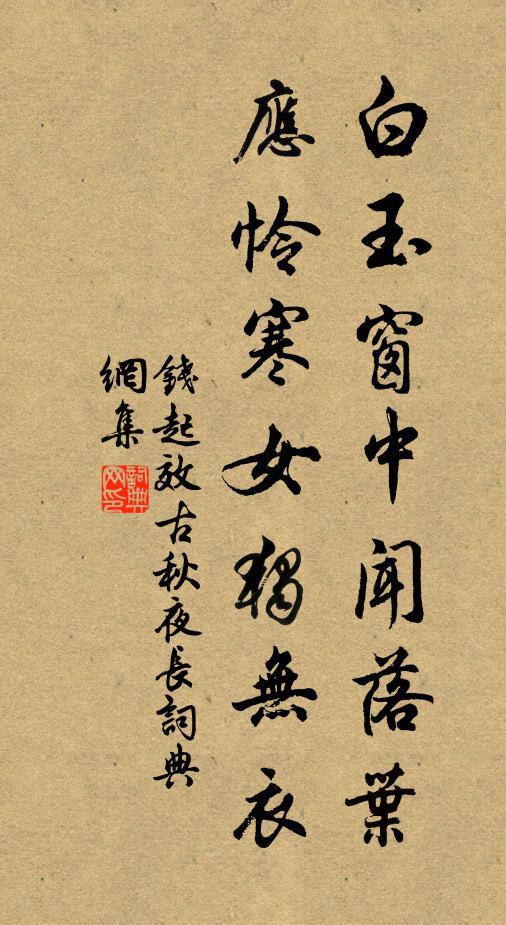 白玉窗中聞落葉
應怜寒女獨無衣
錢起效古秋夜長詞典
網集
詞典網印